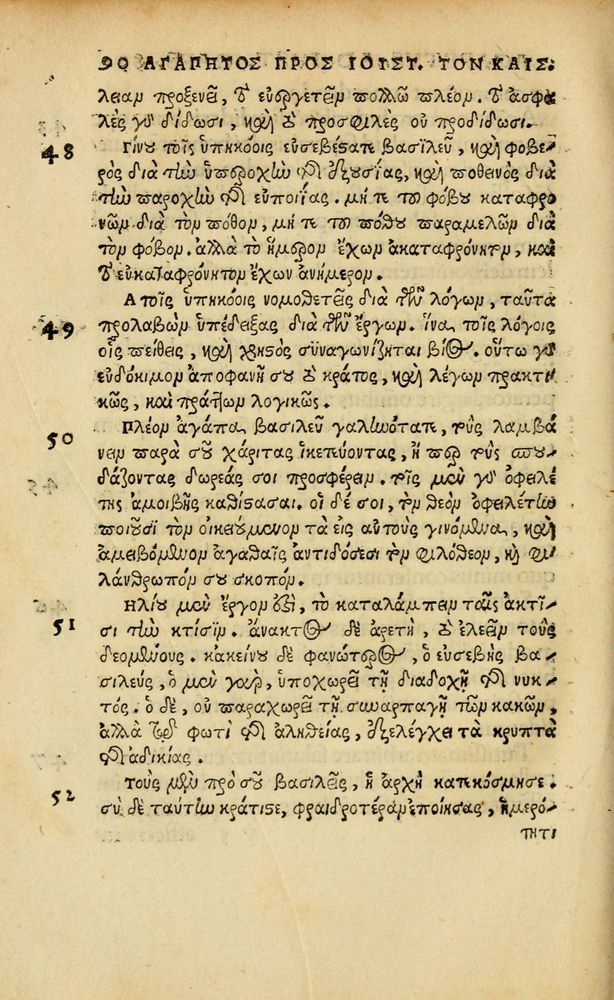 90 ΑΓΑΠΗΤΟΣ ΠΡΟΣ ΙΟΥΣΤ. ΤΟΝ ΚΑΙΣ.
λειαν προξενεῖν, τὸ εὐεργετεῖν πολλῷ πλέον. τὸ ἀσφα-
λὲς γὰρ δίδωσι, καὶ τὸ προσφιλὲς οὐ προδίδωσι.
48 Γίνου τοῖς ὑπηκόοις εὐσεβέστατε βασιλεῦ, καὶ φοβε-
ρὸς διὰ τὴν ὑπεροχὴν τῆς ἐξουσίας, καὶ ποθεινὸς διὰ
τὴν παροχὴν τῆς εὐποιΐας. μήτε τοῦ φόβου καταφρο-
νῶν διὰ τὸν πόθον, μήτε τοῦ πόθου παραμελῶν διὰ
τὸν φόβον. ἀλλὰ τὸ ἥμερον ἔχων ἀκαταφρόνητον, καὶ
τὸ εὐκαταφρόνητον ἔχων ἀνήμερον.
49 Ἃ τοῖς ὑπηκόοις νομοθετεῖς διὰ τῶν λόγων, ταῦτα
προλαβὼν ὑπέδειξας διὰ τῶν ἔργων. ἵνα τοῖς λόγοις
οἷς πείθεις, καὶ χρηστὸς συναγωνίζηται βίος. οὕτω γὰρ
εὐδόκιμον ἀποφανῇ σου τὸ κράτος, καὶ λέγων πρακτι-
κῶς, καὶ πράττων λογικῶς.
50 Πλέον ἀγάπα, βασιλεῦ γαληνότατε, τοὺς λαμβά-
νειν παρὰ σοῦ χάριτας ἱκετεύοντας, ἤπερ τοὺς σπου-
δάζοντας δωρεάς σοι προσφέρειν. τοῖς μὲν γὰρ ὀφειλέ-
της ἀμοιβῆς καθίστασαι. οἱ δέ σοι, τὸν θεὸν ὀφειλέτην
ποιοῦσι τὸν οἰκειούμενον τὰ εἰς αὐτοὺς γινόμενα, καὶ
ἀμειβόμενον ἀγαθαῖς ἀντιδόσεσι τὸν φιλόθεον, καὶ φι-
λάνθρωπόν σου σκοπόν.
51 Ἡλίου μὲν ἔργον ἐστὶ, τὸ καταλάμπειν ταῖς ἀκτῖ-
σι τὴν κτίσιν. ἄνακτος δὲ ἀρετὴ, τὸ ἐλεεῖν τοὺς
δεομένους. κἀκείνου δὲ φανώτερος, ὁ εὐσεβὴς βα-
σιλεύς, ὁ μὲν γὰρ, ὑποχωρεῖ τῇ διαδοχῇ τῆς νυκ-
τός. ὁ δὲ, οὐ παραχωρεῖ τῇ συναρπαγῇ τῶν κακῶν,
ἀλλὰ τῷ φωτὶ τῆς ἀληθείας, ἐξελέγχει τὰ κρυπτὰ
τῆς ἀδικίας.
52 Τοὺς μὲν πρὸ σοῦ βασιλεῖς, ἡ ἀρχὴ κατεκόσμησε.
σὺ δὲ ταύτην κράτιστε, φαιδροτέραν ἐποίησας, ἡμερό-
τητι